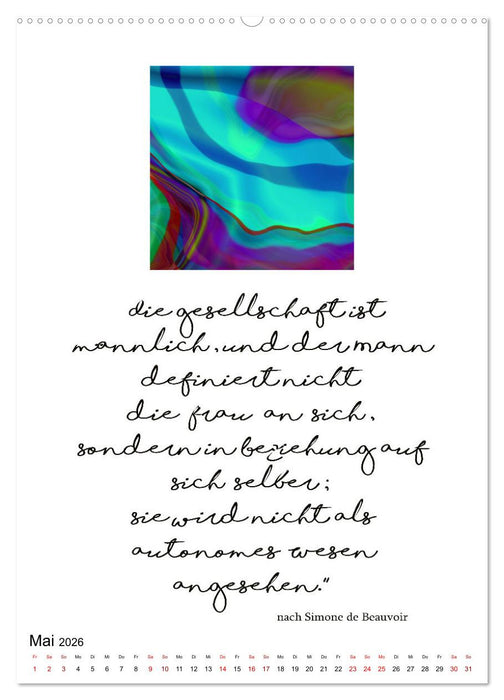 die gesellschaft ist
männlich, und der mann
definiert nicht
die frau an sich,
sondern in beziehung auf
sich selber;
sie wird nicht als
autonomes wesen
angesehen."
nach Simone de Beauvoir
Mai 2026
Fr Sa So Mo Di Mi Do Fr Sa So Mo Di Mi Do Fr Sa So Mo Di Mi Do Fr Sa So Mo Di Mi Do Fr Sa So
1 2 3 4 5 6 7 8 9 10 11 12 13 14 15 16 17 18 19 20 21 22 23 24 25 26 27 28 29 30 31